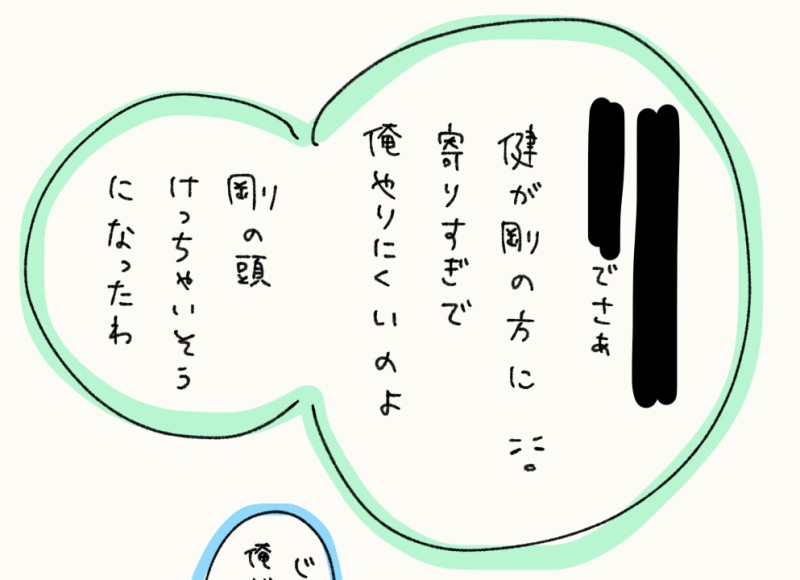 でさぁ
健が剛の方に
寄りすぎで
俺やりにくいのよ
剛の頭
けっちゃいそう
になったわ
じ
俺